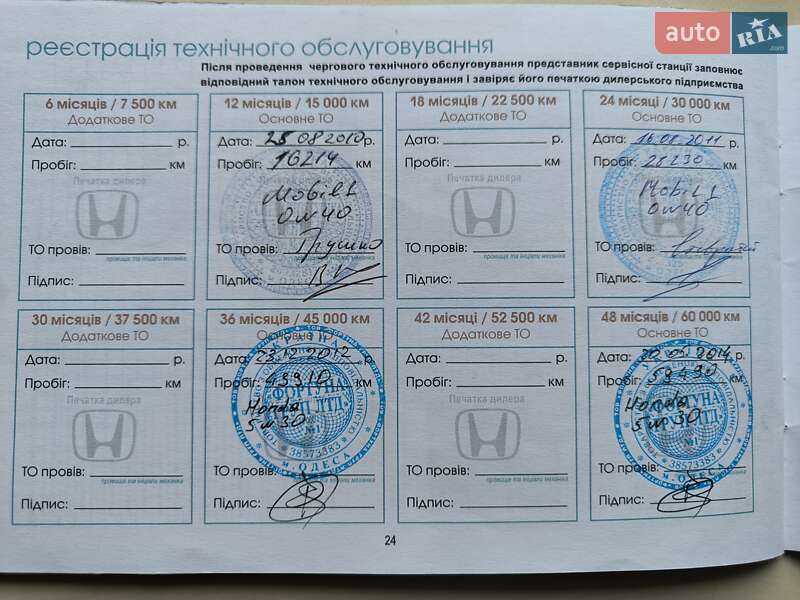 auto RIA.com
реєстрація технічного обслуговування
Після проведення чергового технічного обслуговування представник сервісної станції заповнює
відповідний талон технічного обслуговування і завіряє його печаткою дилерського підприємства
6 місяців / 7 500 км
Додаткове ТО
Дата: р.
Пробіг: км
Печатка дилера
ТО провів:
прізвище та ініціали механіка
Підпис:
12 місяців / 15 000 км
Основне ТО
Дата: 25 08 2010 р.
Пробіг: 16214 км
Mobil 1
0w40
ТО провів:
Підпис:
18 місяців / 22 500 км
Додаткове ТО
Дата: р.
Пробіг: км
Печатка дилера
ТО провів:
прізвище та ініціали механіка
Підпис:
24 місяці / 30 000 км
Основне ТО
Дата: 16.08.2011 р.
Пробіг: 28230 км
Mobil 1
0w40
ТО провів:
прізвище та ініціали механіка
Підпис:
30 місяців / 37 500 км
Додаткове ТО
Дата: р.
Пробіг: км
Печатка дилера
ТО провів:
прізвище та ініціали механіка
Підпис:
36 місяців / 45 000 км
Основне ТО
Дата: 23.12.2012 р.
Пробіг: км
Honda
5w30
ФОРТУНА
ЛТД
38573383
м. ОДЕСА
ТО провів:
Підпис:
42 місяці / 52 500 км
Додаткове ТО
Дата: р.
Пробіг: км
Печатка дилера
ТО провів:
прізвище та ініціали механіка
Підпис:
48 місяців / 60 000 км
Основне ТО
Дата: р.
Пробіг: км
Honda
5w30
38573383
ОДЕСА
ТО провів:
Підпис:
24